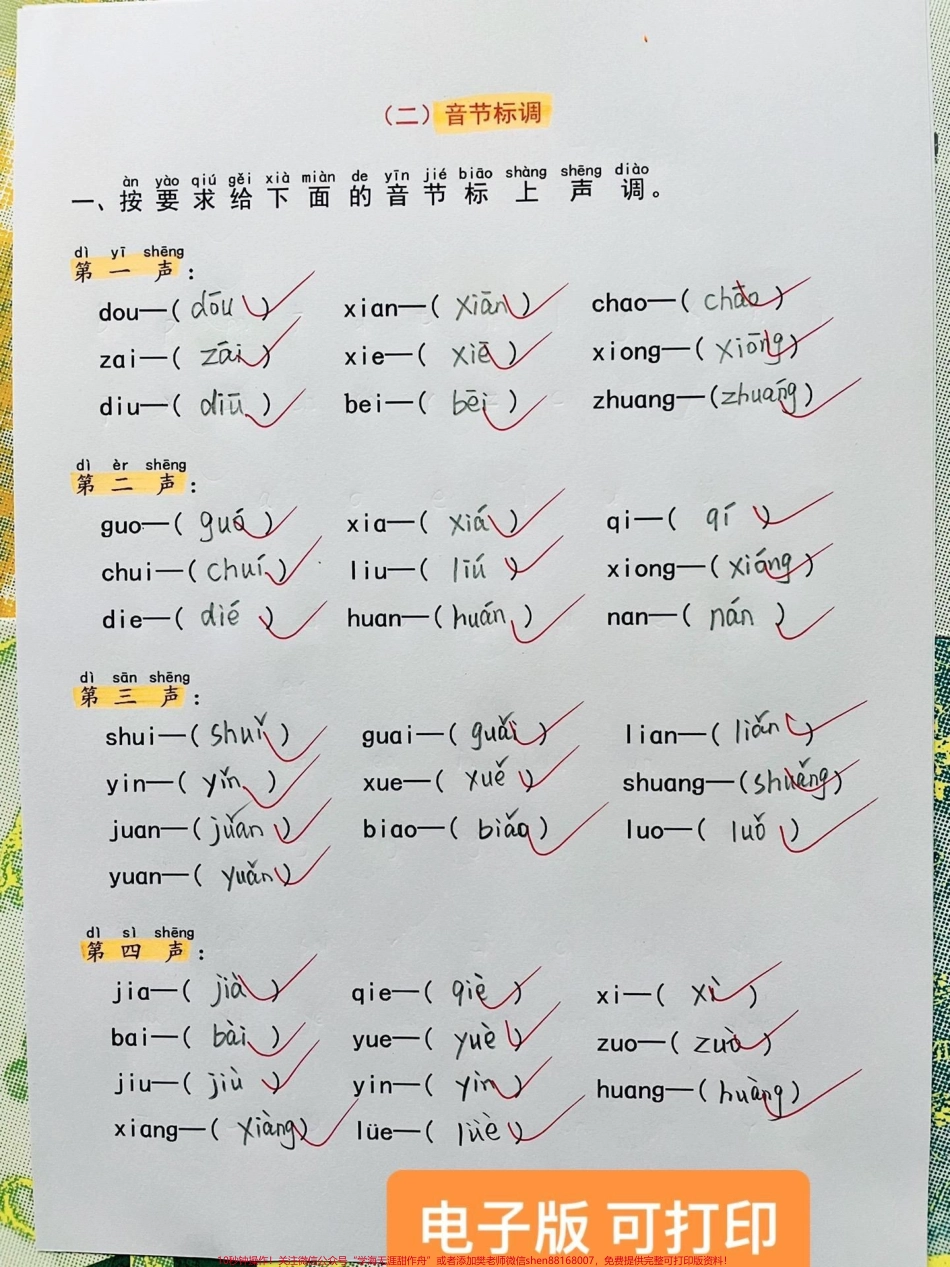 （二）音节标调
àn yào qiú gěi xià miàn de yīn jié biāo shàng shēng diào
一、按要求给下面的音节标上声调。
dì yī shēng
第一声：
dou—( dōu ) xian—( xiān ) chao—( chāo )
zai—( zāi ) xie—( xiē ) xiong—( xiōng )
diu—( diū ) bei—( bēi ) zhuang—( zhuāng )
dì èr shēng
第二声：
guo—( guó ) xia—( xiá ) qi—( qí )
chui—( chuí ) liu—( liú ) xiong—( xióng )
die—( dié ) huan—( huán ) nan—( nán )
dì sān shēng
第三声：
shui—( shuǐ ) guai—( guǎi ) lian—( liǎn )
yin—( yǐn ) xue—( xuě ) shuang—( shuǎng )
juan—( juǎn ) biao—( biǎo ) luo—( luǒ )
yuan—( yuǎn )
dì sì shēng
第四声：
jia—( jià ) qie—( qiè ) xi—( xì )
bai—( bài ) yue—( yuè ) zuo—( zuò )
jiu—( jiù ) yin—( yìn ) huang—( huàng )
xiang—( xiàng ) lüe—( lüè )
电子版 可打印
10秒钟操作！关注微信公众号“学海无涯甜作舟”或者添加樊老师微信shen88168007，免费提供完整可打印版资料！